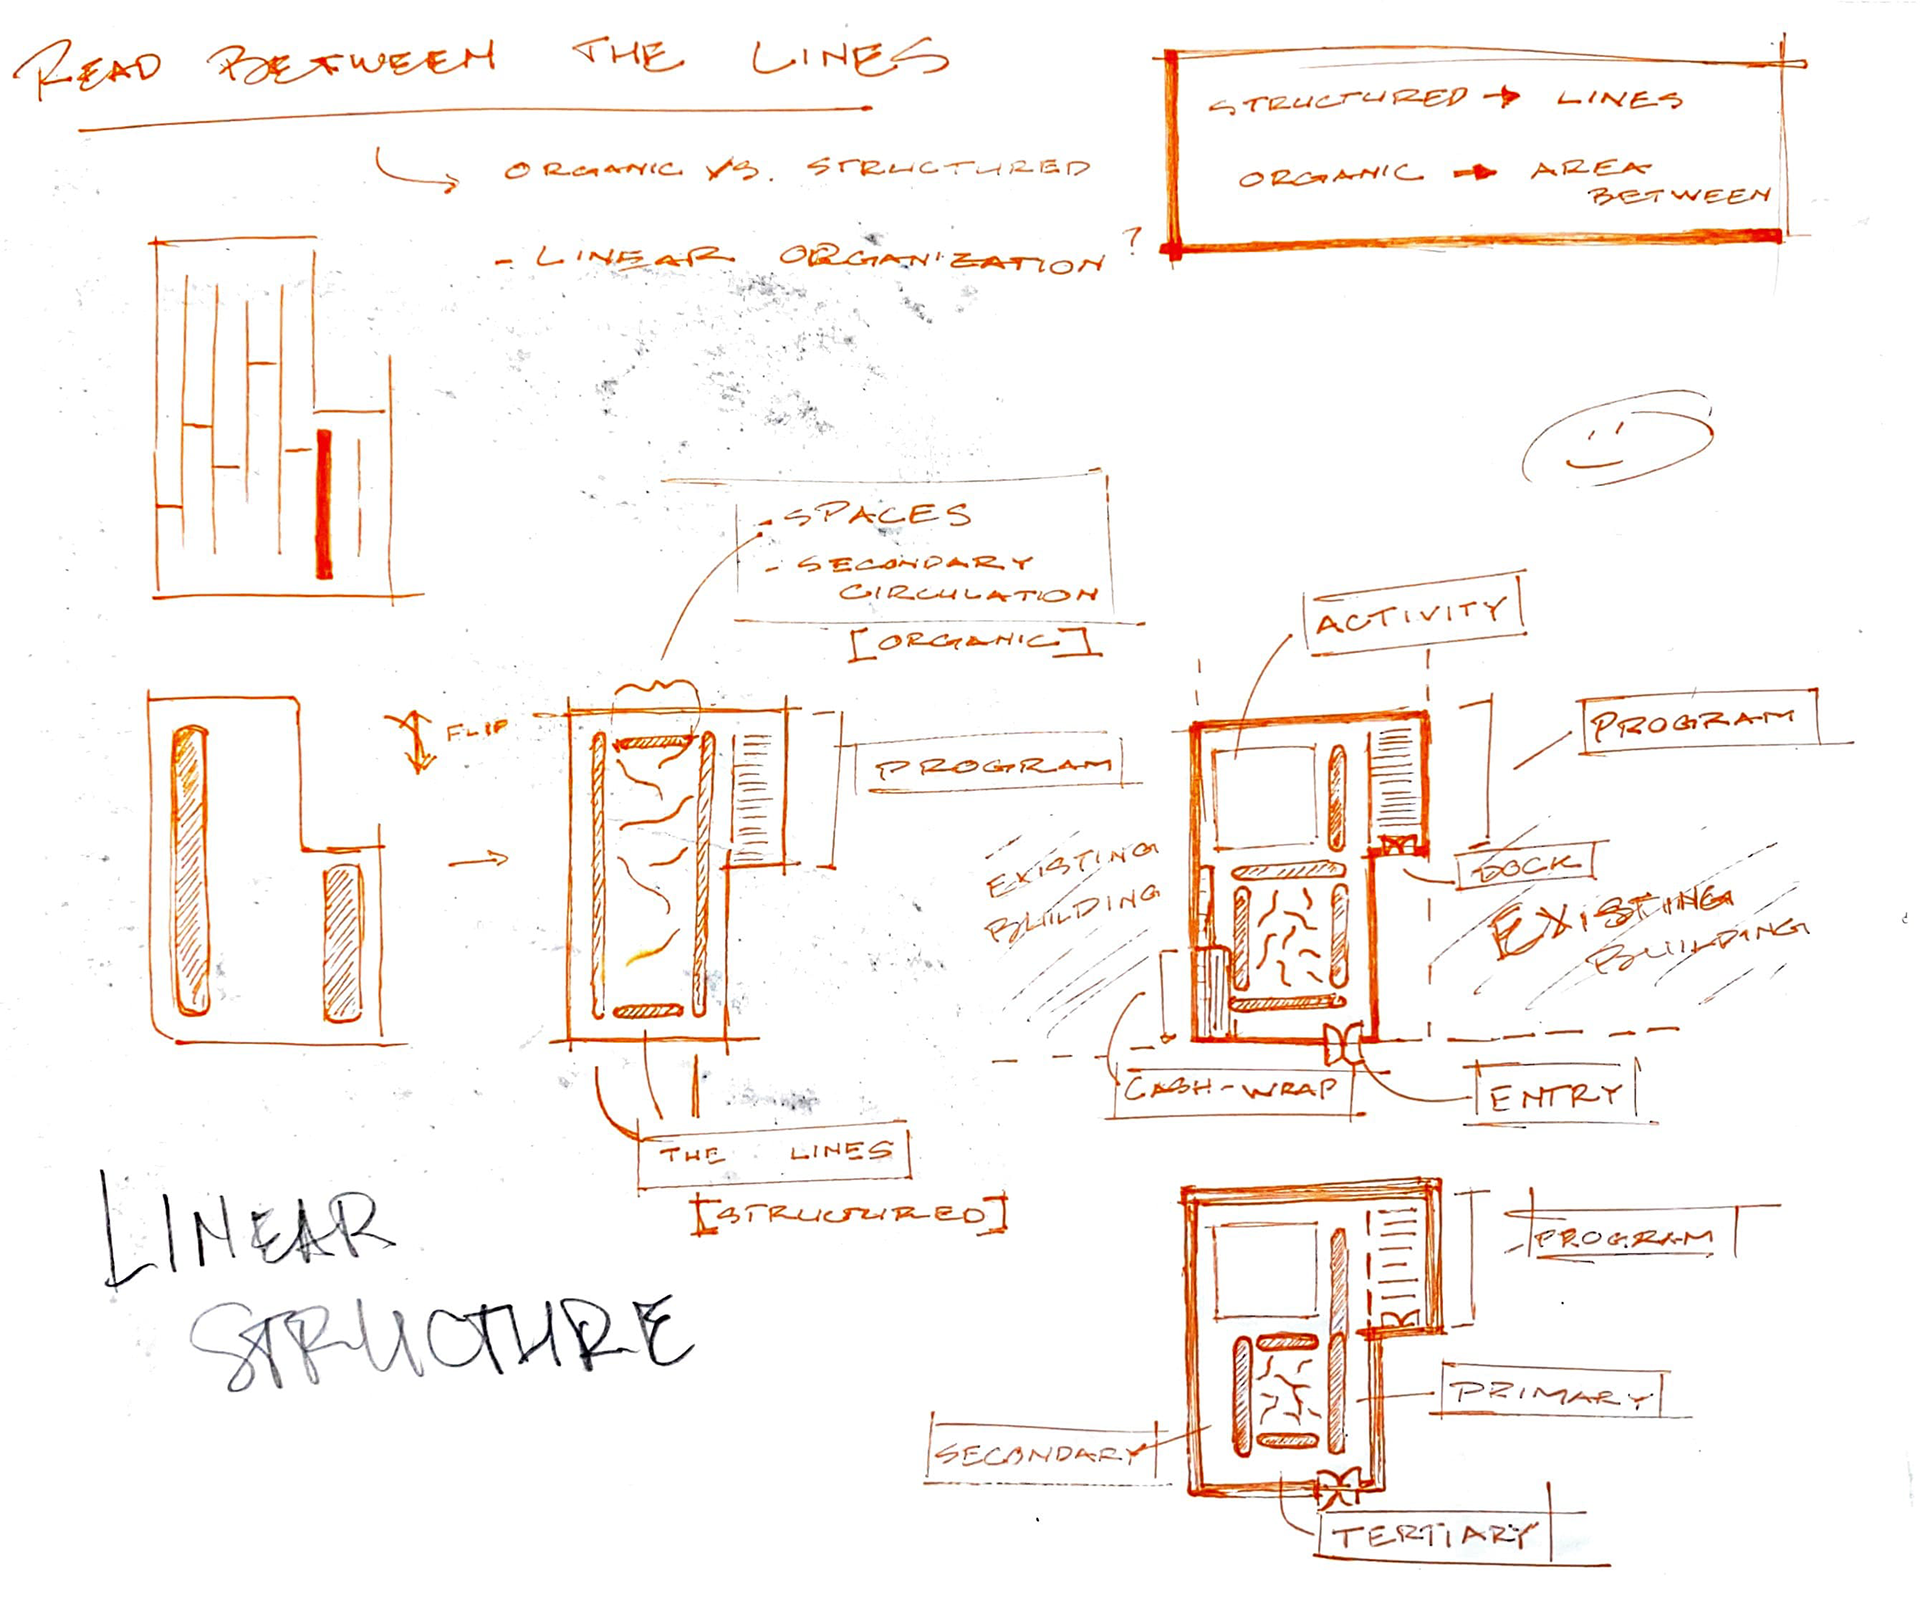 READ BETWEEN THE LINES
ORGANIC VS. STRUCTURED
- LINEAR ORGANIZATION ?
STRUCTURED → LINES
ORGANIC → AREA
BETWEEN
- SPACES
- SECONDARY
CIRCULATION
[ORGANIC]
FLIP
PROGRAM
THE LINES
[STRUCTURED]
ACTIVITY
PROGRAM
DOCK
EXISTING
BUILDING
EXISTING
BUILDING
CASH-WRAP
ENTRY
LINEAR
STRUCTURE
PROGRAM
PRIMARY
SECONDARY
TERTIARY